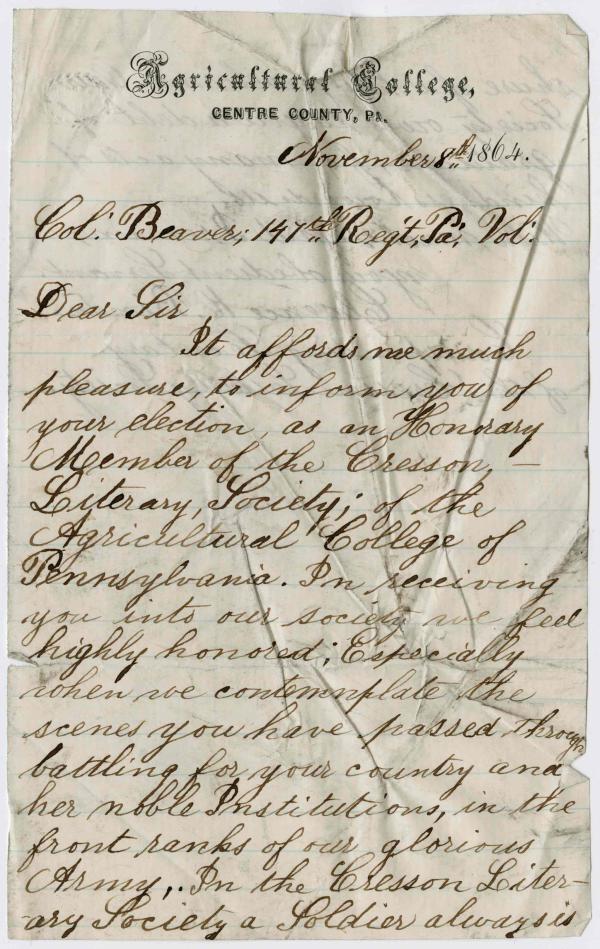 Agricultural College,
CENTRE COUNTY, PA.
November 8th 1864.
Col. Beaver; 147th Reg't, Pa. Vol.
Dear Sir
It affords me much
pleasure, to inform you of
your election, as an Honorary
Member of the Cresson, –
Literary, Society; of the
Agricultural College of
Pennsylvania. In receiving
you into our society we feel
highly honored; Especially
when we contemnplate the
scenes you have passed through
battling for your country and
her noble Institutions, in the
front ranks of our glorious
Army,. In the Cresson Liter-
ary Society a Soldier always is